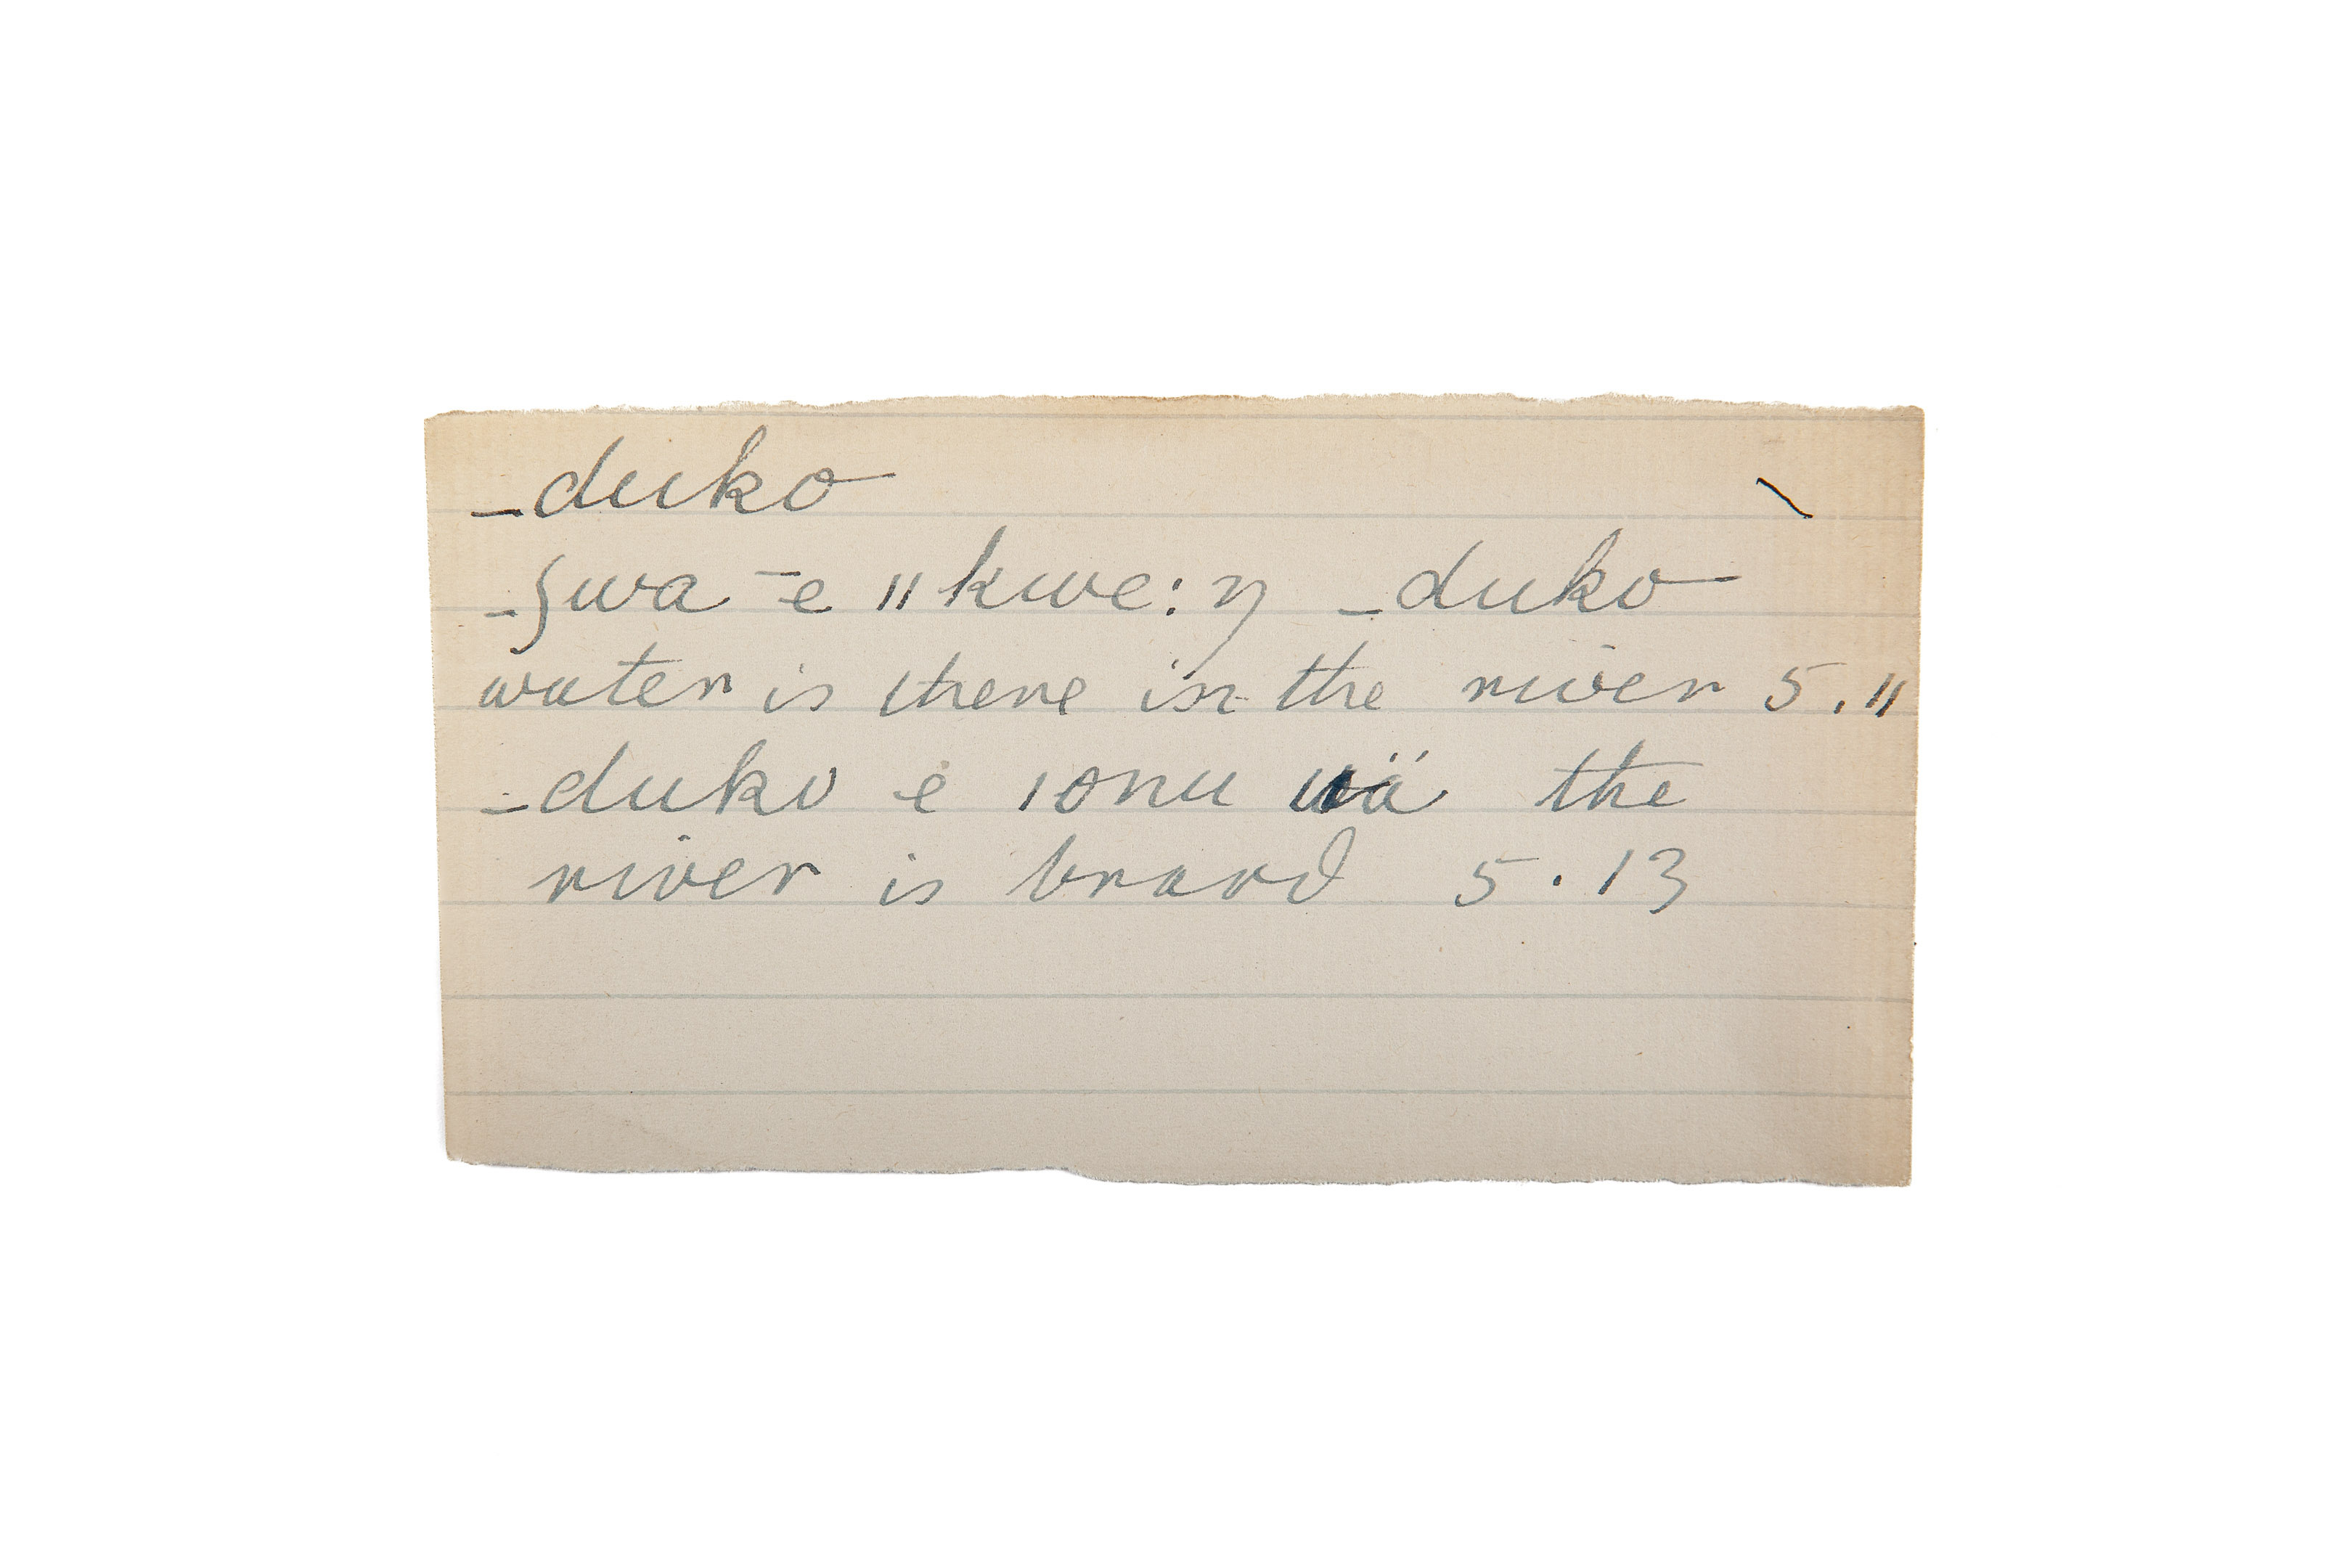 _duko
_ʃwa ¯e ııkwe:ŋ _duko
water is there in the river 5.11
_duko -e ıonu uä the
river is broad 5.13